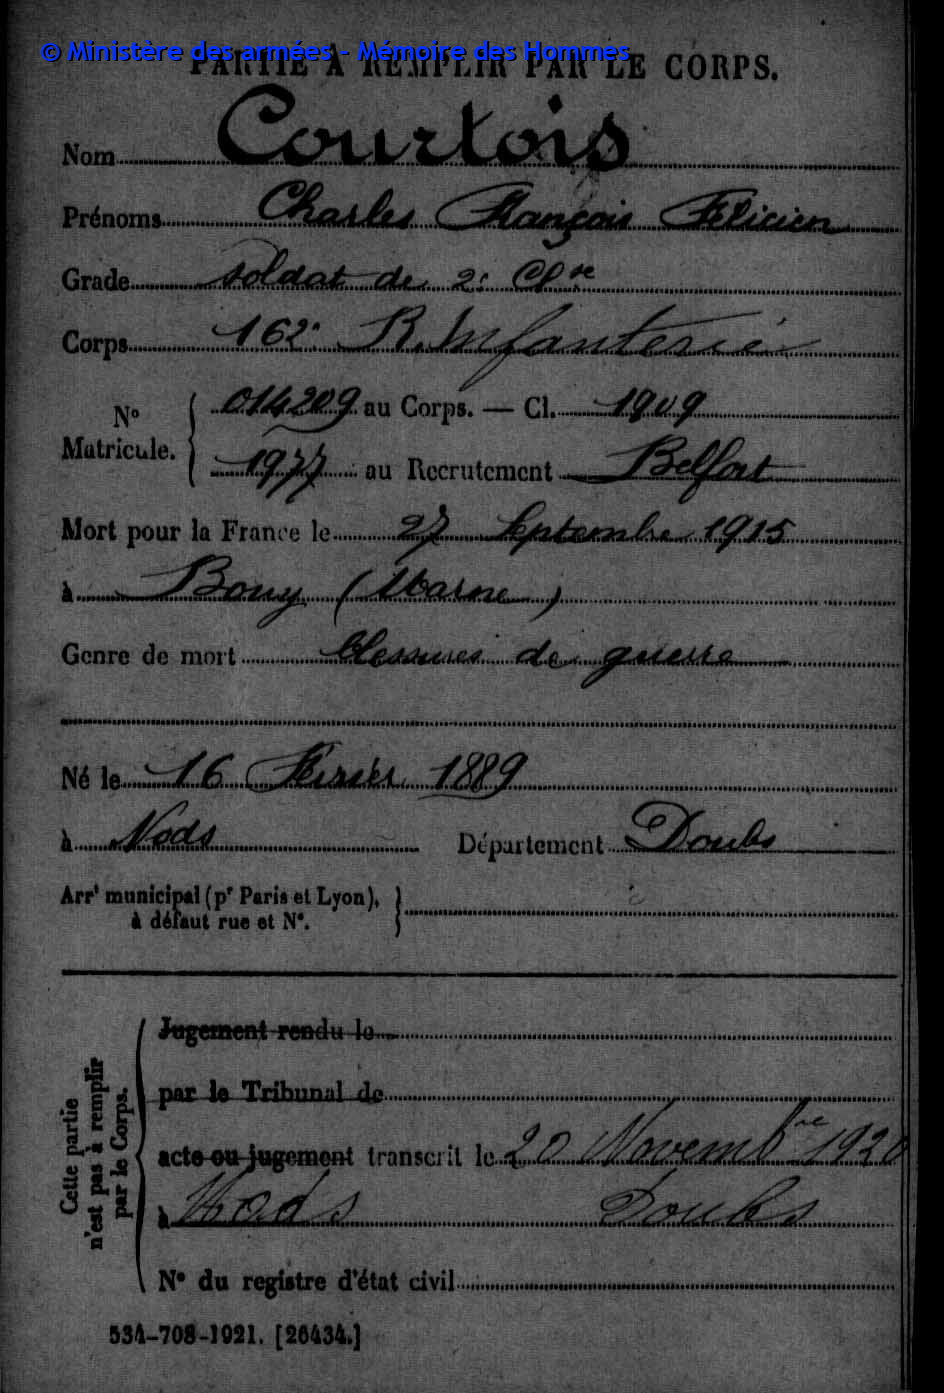 © Ministère des armées - Mémoire des Hommes
PARTIE À REMPLIR PAR LE CORPS.
Nom Courtois
Prénoms Charles François Félicien
Grade soldat de 2e Clse
Corps 162e R. Infanterie
N° Matricule. 014209 au Corps. — Cl. 1909
1977 au Recrutement Belfort
Mort pour la France le 27 Septembre 1915
à Bouy (Marne)
Genre de mort blessures de guerre
Né le 16 Février 1889
à Nods Département Doubs
Arrt municipal (pr Paris et Lyon),
à défaut rue et N°.
Cette partie
n'est pas à remplir
par le Corps.
Jugement rendu le
par le Tribunal de
acte ou jugement transcrit le 20 Novembre 1920
à Nods Doubs
N° du registre d'état civil
534-708-1921. [26434.]